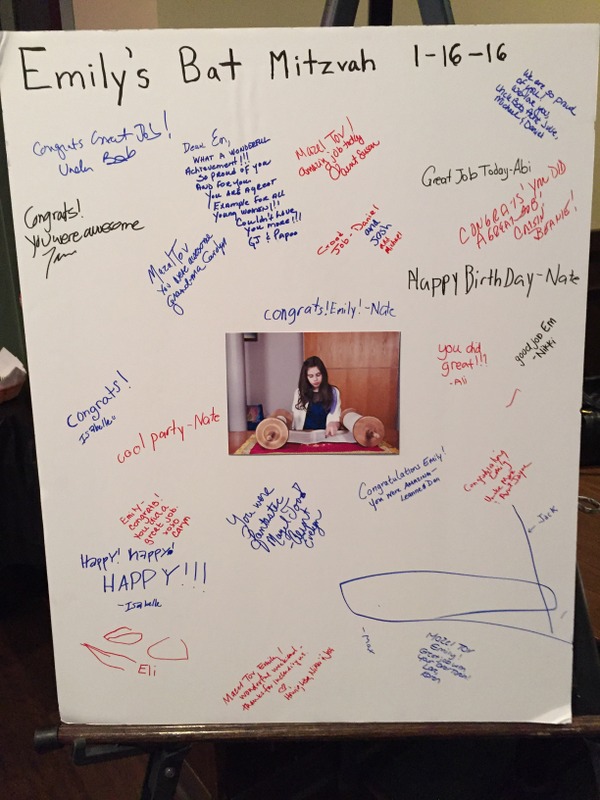 Emily's Bat Mitzvah 1-16-16
We are so proud
of you!
We love you,
Uncle Bob, Aunt Julie,
Michael & Daniel
Congrats Great Job!
Uncle Bob
Dear Em,
WHAT A WONDERFUL
Achievement!!!
SO PROUD OF YOU
AND FOR YOU
YOU ARE A GREAT
Example for All
YOUNG WOMEN!!!
Couldn't Have
You More!!!
GJ & Papoo
Mazel Tov!
Amazing job today
Great Job Today-Abi
CONGRATS! YOU DID
A GREAT JOB!
Congrats!
You were awesome
Good
Job - Daniel
and
Josh
and
Michael
Mazel Tov
You were awesome
Grandma Carolyn
Happy BirthDay-Nate
congrats! Emily!-Nate
you did
great!!!
-Ali
good job Em
-Nikki
Congrats!
Isabelle
cool party-Nate
Congratulations Emily!
You were Amazing-
Leanne & Dan
Congratulations
Emily
Emily-
congrats!
You did a
great job.
xoxo
Caryn
You were
fantastic
Mazel Tov!
Evelyn
Happy! Happy!
HAPPY!!!
-Isabelle
← Jack
-Max
Eli
Mazel Tov Emily!
wonderful weekend
thanks for including us.
Mazel Tov
Emily
Great job with
your
Love